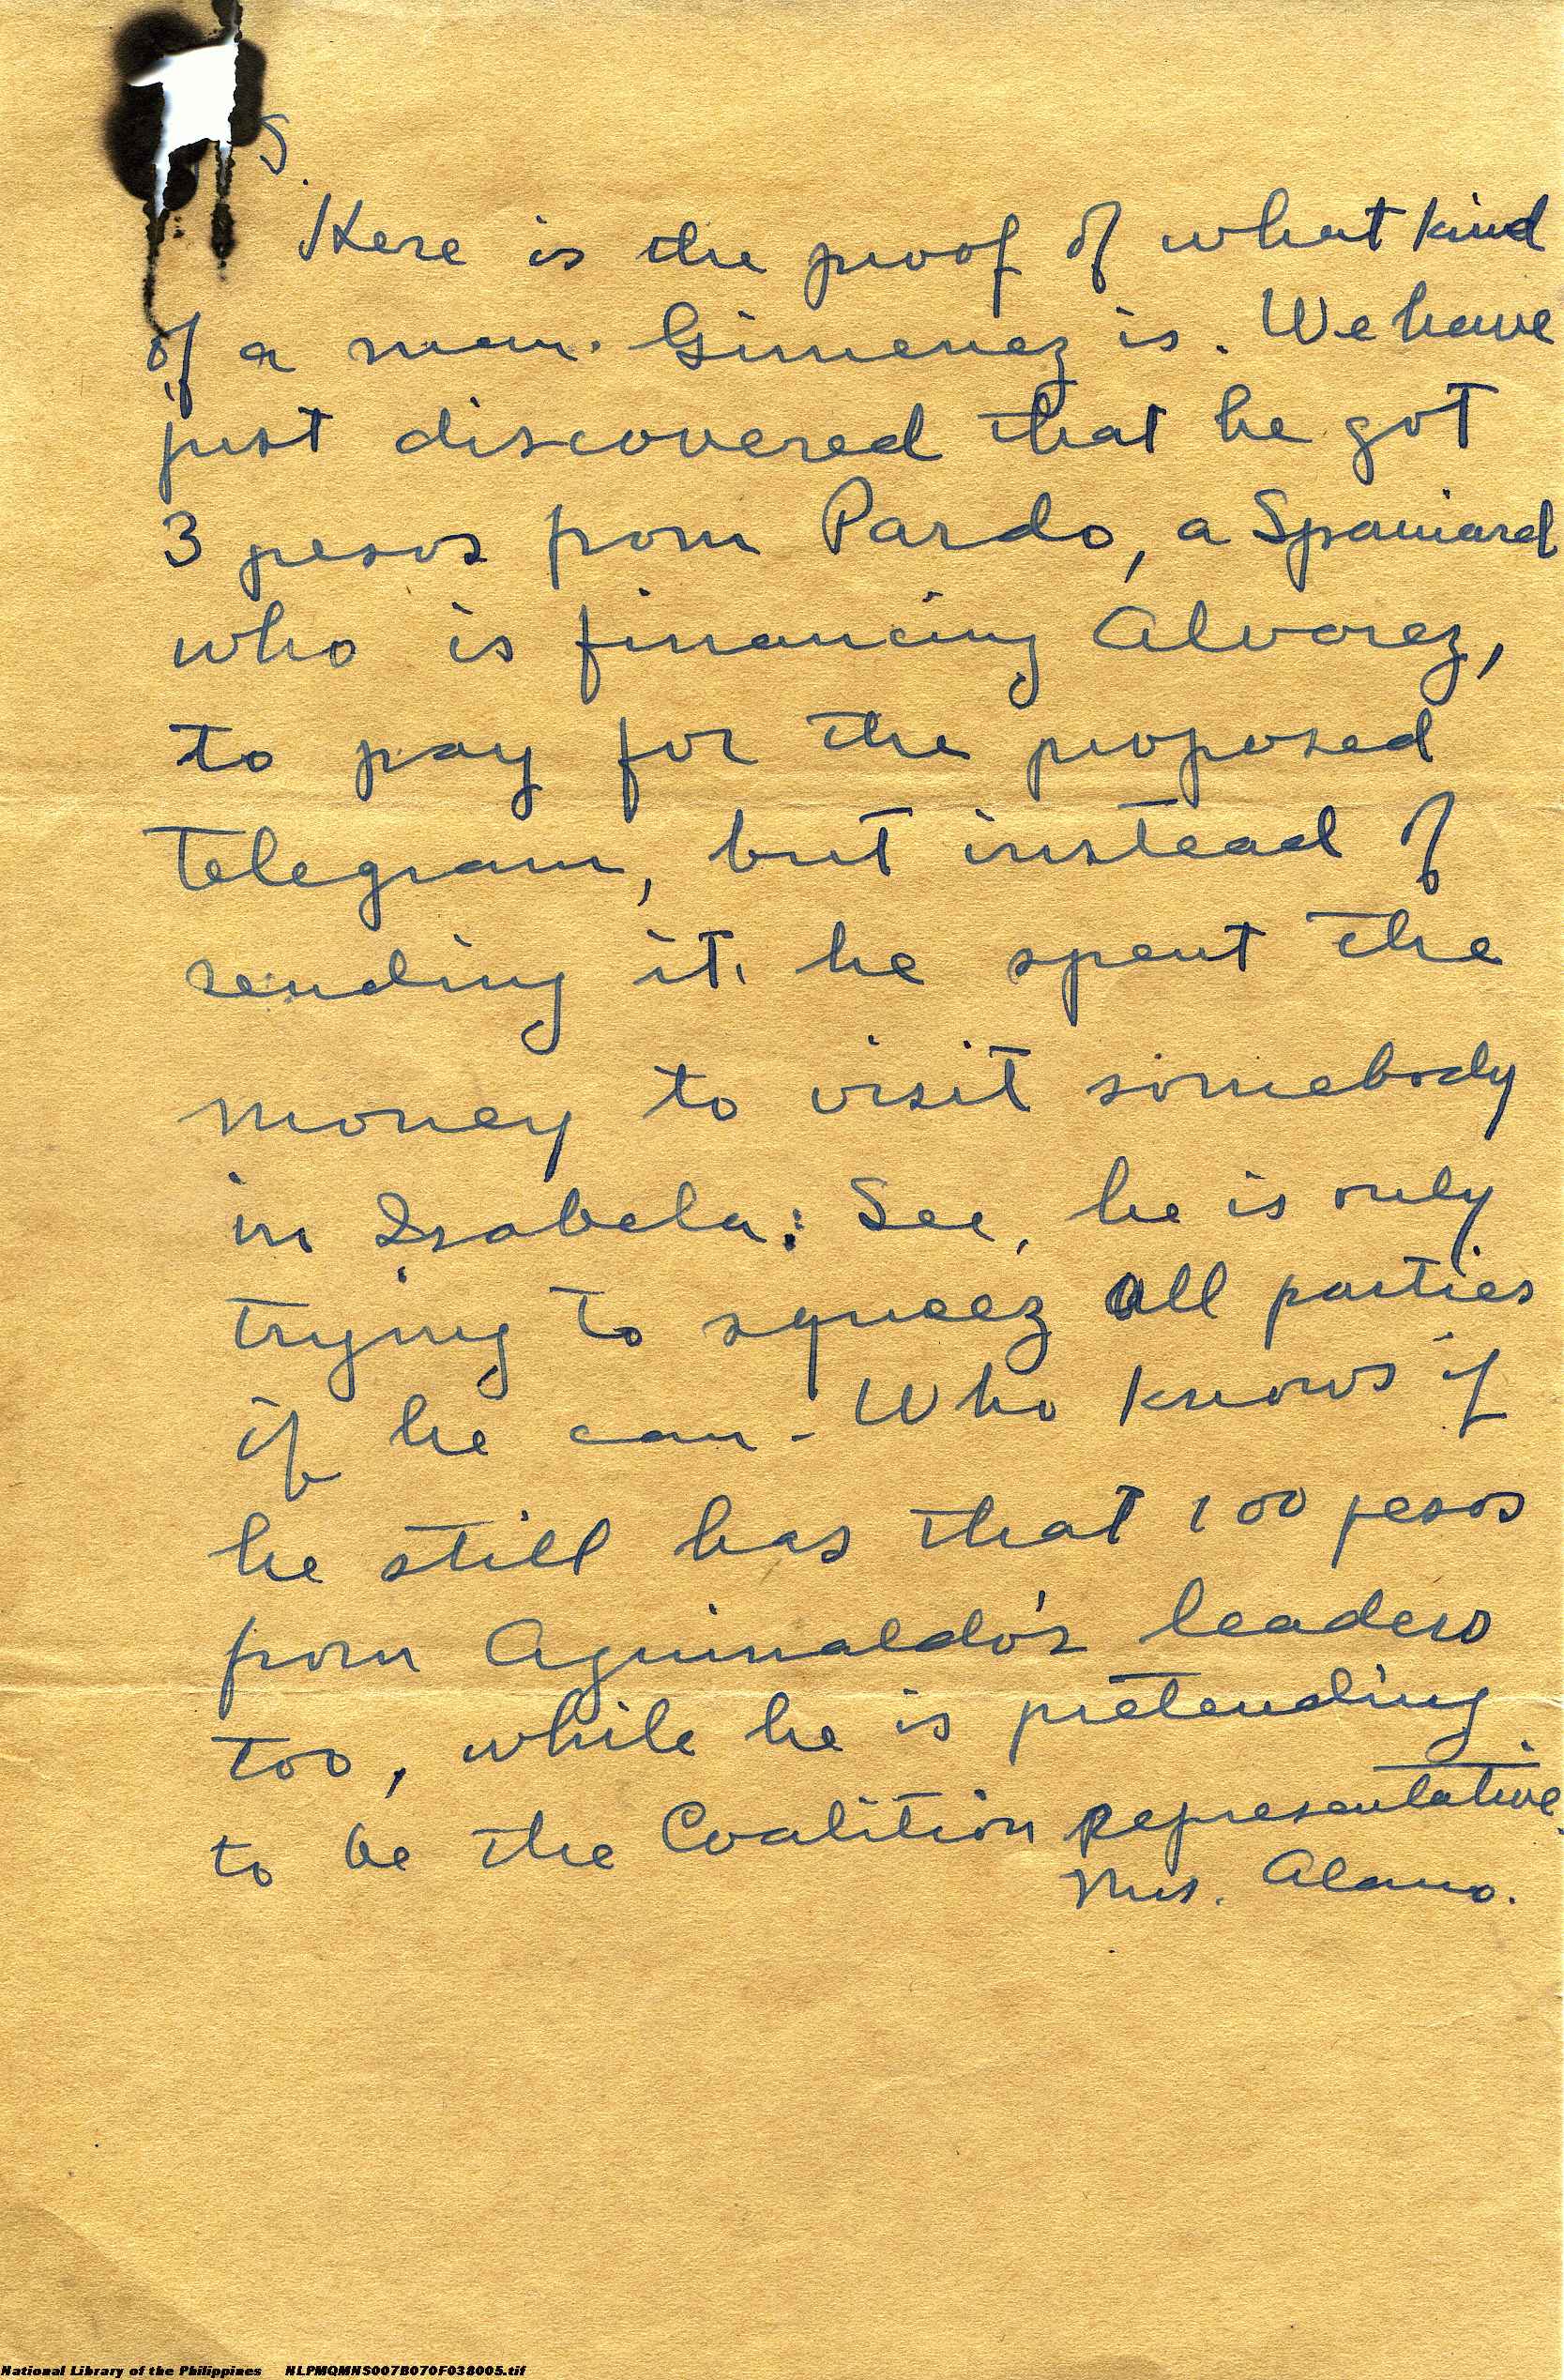 S.
Here is the proof of what kind
of a man. Gimenez is. We have
just discovered that he got
3 pesos from Pardo, a Spaniard
who is financing Alvarez,
to pay for the proposed
telegram, but instead of
sending it, he spent the
money to visit somebody
in Isabela; See, he is only
trying to squeez all parties
if he can - Who knows if
he still has that 100 pesos
from Aguinaldo's leaders
too, while he is pretending
to be the Coalition representative.
Mrs. Alano.
National Library of the Philippines NLPMQMNS007B070F038005.tif